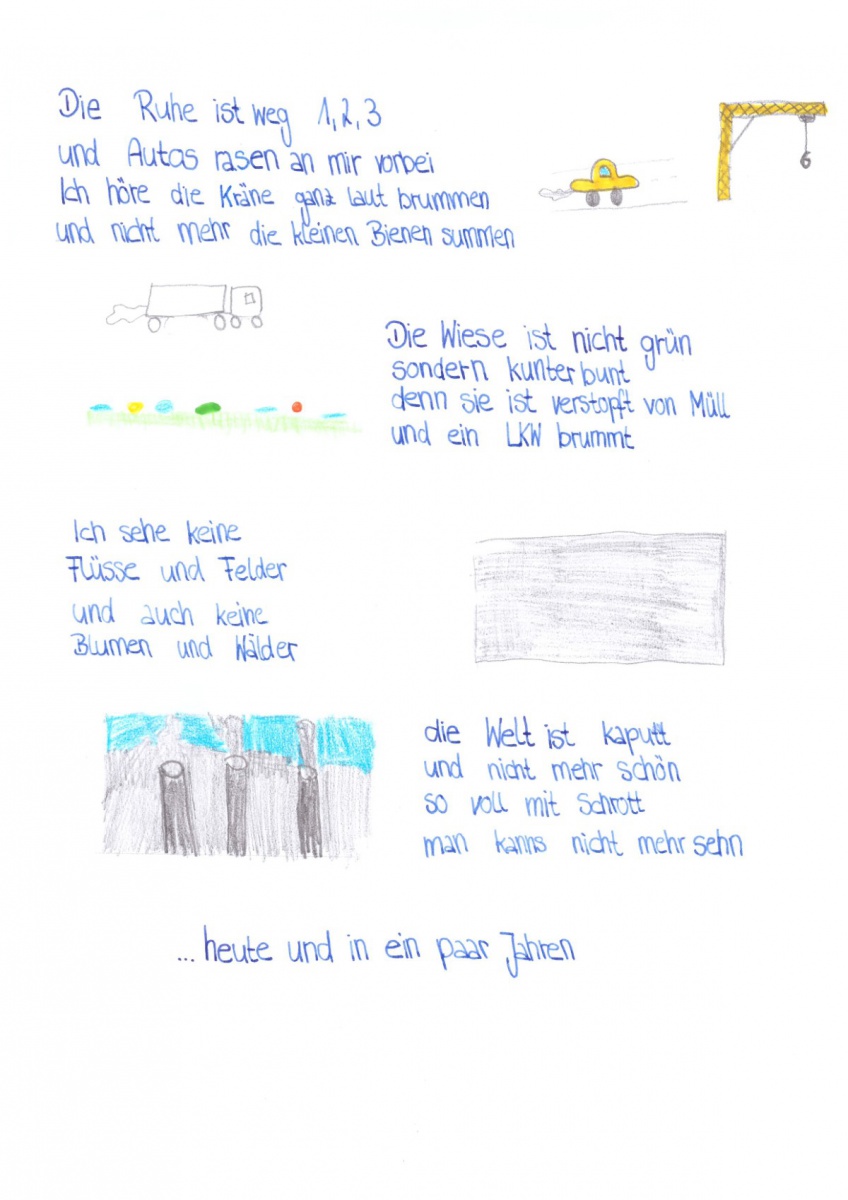 Die Ruhe ist weg 1, 2, 3
und Autos rasen an mir vorbei
Ich höre die Kräne ganz laut brummen
und nicht mehr die kleinen Bienen summen
6
Die Wiese ist nicht grün
sondern kunterbunt
denn sie ist verstopft von Müll
und ein LKW brummt
Ich sehe keine
Flüsse und Felder
und auch keine
Blumen und Wälder
die Welt ist kaputt
und nicht mehr schön
so voll mit Schrott
man kanns nicht mehr sehn
... heute und in ein paar Jahren